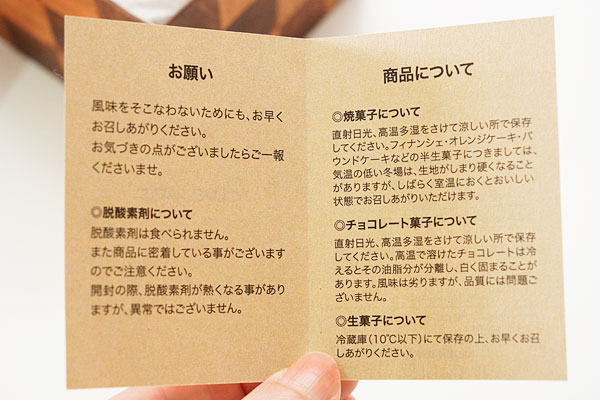 お願い
風味をそこなわないためにも、お早く
お召しあがりください。
お気づきの点がございましたらご一報
くださいませ。
◎脱酸素剤について
脱酸素剤は食べられません。
また商品に密着している事がございます
のでご注意ください。
開封の際、脱酸素剤が熱くなる事があり
ますが、異常ではございません。
商品について
◎焼菓子について
直射日光、高温多湿をさけて涼しい所で保存
してください。フィナンシェ・オレンジケーキ・パ
ウンドケーキなどの半生菓子につきましては、
気温の低い冬場は、生地がしまり硬くなること
がありますが、しばらく室温におくとおいしい
状態でお召しあがりいただけます。
◎チョコレート菓子について
直射日光、高温多湿をさけて涼しい所で保存
してください。高温で溶けたチョコレートは冷
えるとその油脂分が分離し、白く固まることが
あります。風味は劣りますが、品質には問題ご
ざいません。
◎生菓子について
冷蔵庫(10℃以下)にて保存の上、お早くお召
しあがりください。